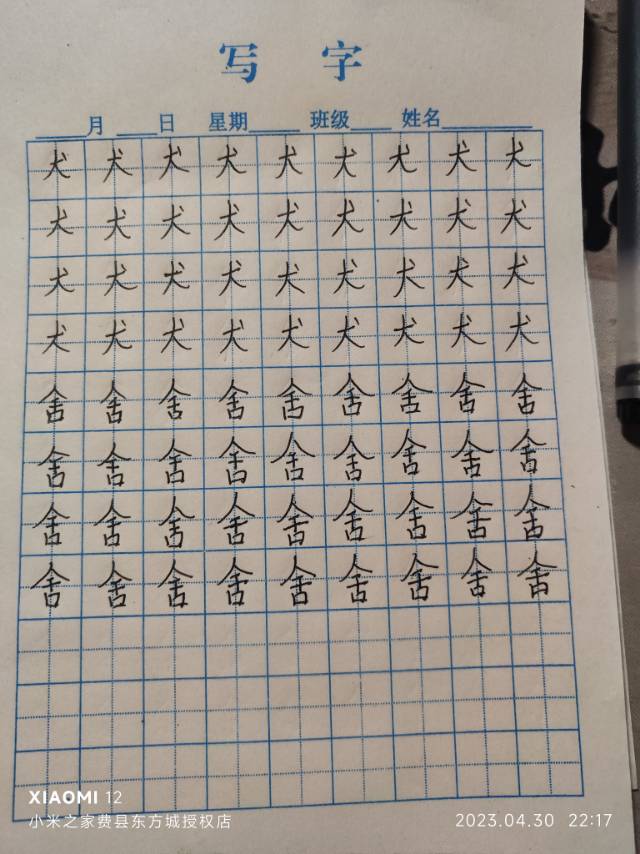 写 字
____月 ____日 星期____ 班级____ 姓名________
犬 犬 犬 犬 犬 犬 犬 犬 犬
犬 犬 犬 犬 犬 犬 犬 犬 犬
犬 犬 犬 犬 犬 犬 犬 犬 犬
犬 犬 犬 犬 犬 犬 犬 犬 犬
舍 舍 舍 舍 舍 舍 舍 舍 舍
舍 舍 舍 舍 舍 舍 舍 舍 舍
舍 舍 舍 舍 舍 舍 舍 舍 舍
舍 舍 舍 舍 舍 舍 舍 舍 舍
XIAOMI 12
小米之家费县东方城授权店 2023.04.30 22:17